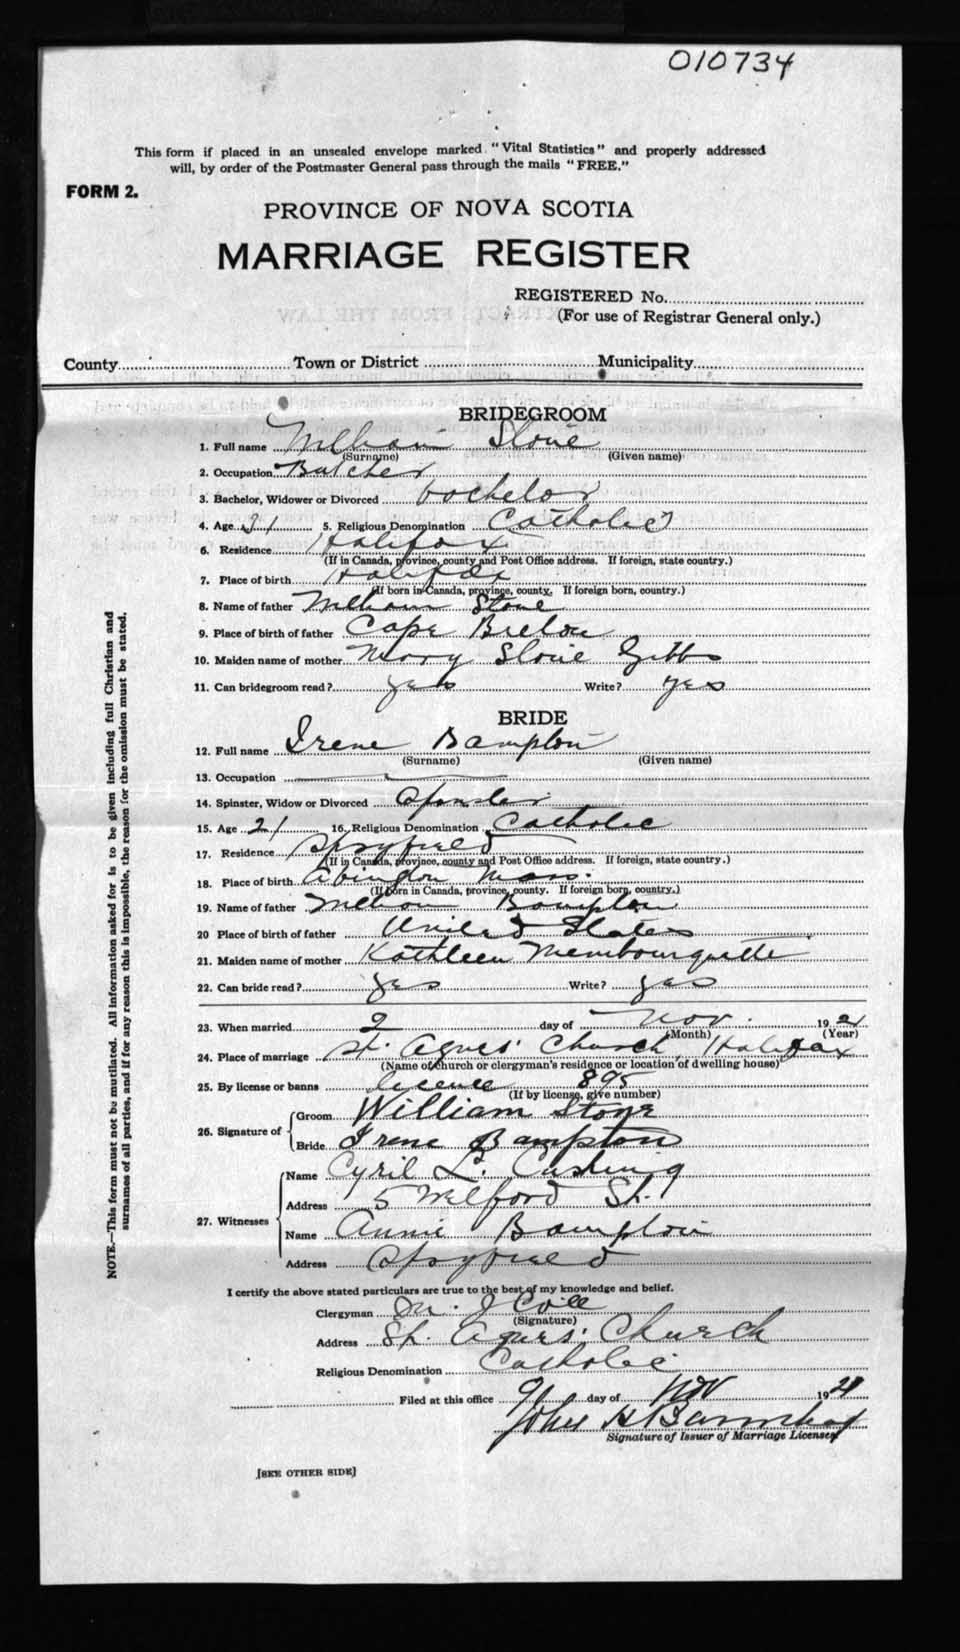 010734
This form if placed in an unsealed envelope marked "Vital Statistics" and properly addressed
will, by order of the Postmaster General pass through the mails "FREE."
FORM 2.
PROVINCE OF NOVA SCOTIA
MARRIAGE REGISTER
REGISTERED No.
(For use of Registrar General only.)
County Town or District Municipality
BRIDEGROOM
1. Full name William Stone
(Surname) (Given name)
2. Occupation Butcher
3. Bachelor, Widower or Divorced bachelor
4. Age 31 5. Religious Denomination Catholic
6. Residence Halifax
(If in Canada, province, county and Post Office address. If foreign, state country.)
7. Place of birth Halifax
(If born in Canada, province, county. If foreign born, country.)
8. Name of father William Stone
9. Place of birth of father Cape Breton
10. Maiden name of mother Mary Stone Gibbs
11. Can bridegroom read? yes Write? yes
BRIDE
12. Full name Irene Bampton
(Surname) (Given name)
13. Occupation
14. Spinster, Widow or Divorced Spinster
15. Age 21 16. Religious Denomination Catholic
17. Residence Spryfield
(If in Canada, province, county and Post Office address. If foreign, state country.)
18. Place of birth Abington Mass.
(If born in Canada, province, county. If foreign born, country.)
19. Name of father William Bampton
20 Place of birth of father United States
21. Maiden name of mother Kathleen
22. Can bride read? yes Write? yes
23. When married 2 day of Nov. 192
(Month) (Year)
24. Place of marriage St. Agnes' Church, Halifax
(Name of church or clergyman's residence or location of dwelling house)
25. By license or banns licence 895
(If by license, give number)
26. Signature of
Groom William Stone
Bride Irene Bampton
27. Witnesses
Name Cyril L. Cushing
Address 5 Welford St.
Name Annie Bampton
Address Spryfield
I certify the above stated particulars are true to the best of my knowledge and belief.
Clergyman
(Signature)
Address St. Agnes' Church
Religious Denomination Catholic
Filed at this office 9 day of Nov 192
John H Barnstead
Signature of Issuer of Marriage Licenses
[SEE OTHER SIDE]
NOTE.—This form must not be mutilated. All information asked for is to be given including full Christian and
surnames of all parties, and if for any reason this is impossible, the reason for the omission must be stated.